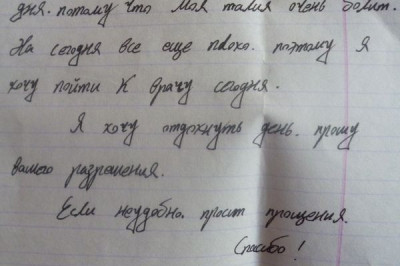 дня. потому что моя талия очень болит.
На сегодня все еще плохо. поэтому я
хочу пойти к врачу сегодня.
Я хочу отдохнуть день. прошу
вашего разрешения.
Если неудобно. просит прощения.
Спасибо!